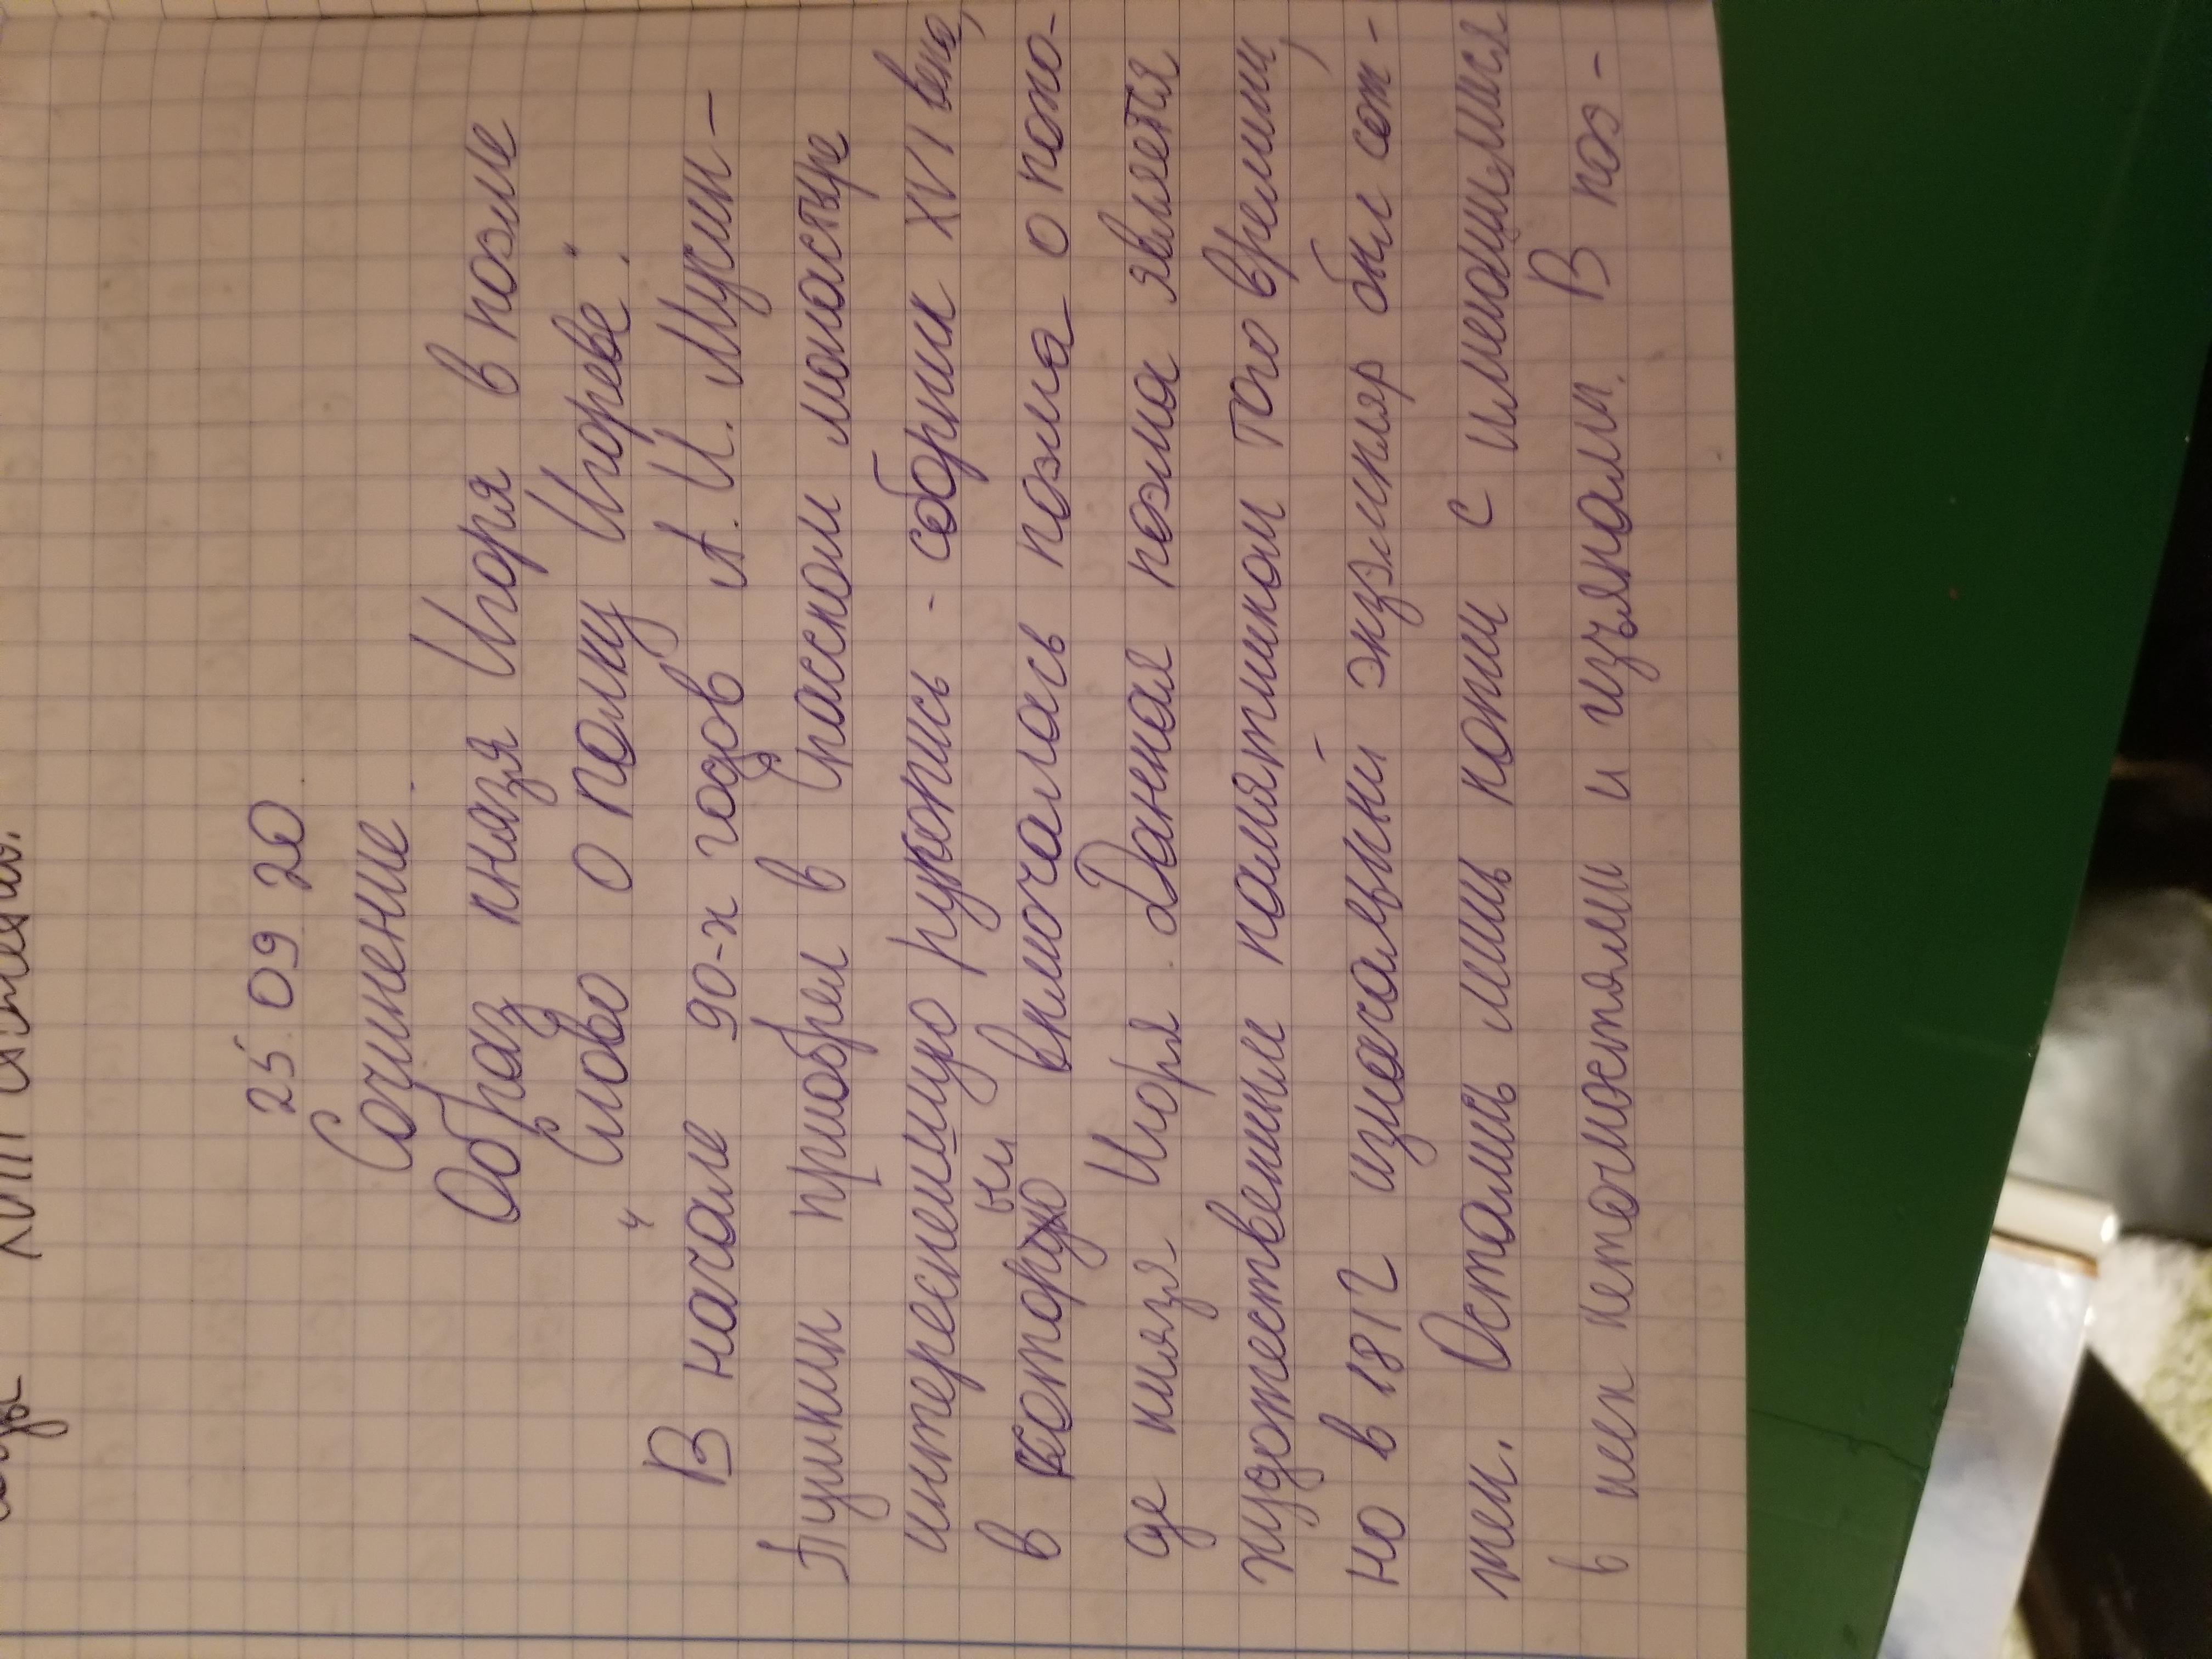 25 09 20
Сочинение.
Образ князя Игоря в поэме
"Слово о полку Игореве".
В начале 90-х годов А. И. Мусин-
Пушкин приобрел в Спасском монастыре
интереснейшую рукопись - сборник XVI века,
в который включалась поэма о похо-
де князя Игоря. Данная поэма является
художественным памятником того времени,
но в 1812 изначальный экземпляр был сож-
жен. Остались лишь копии с имеющимися
в них неточностями и изъянами. В поэ-